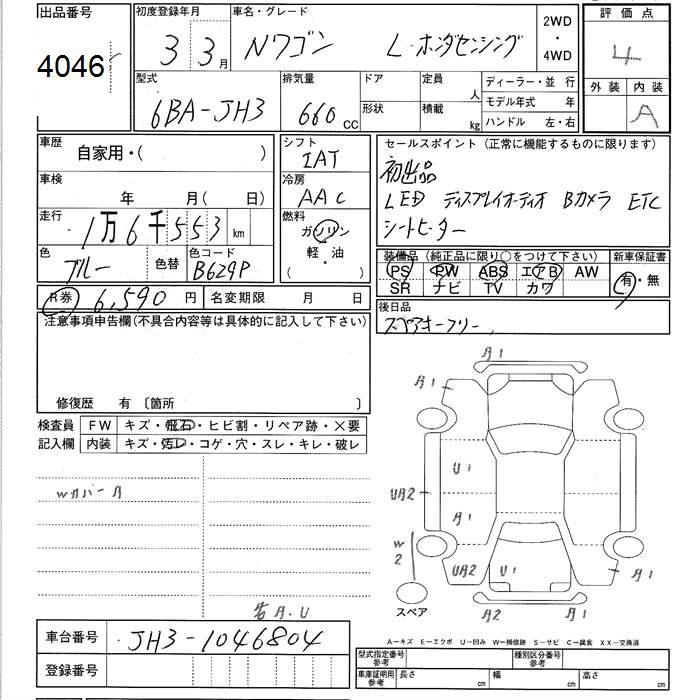 出品番号
4046
初度登録年月
3 3月
車名・グレード
Nワゴン L・ホンダセンシング
2WD
・
4WD
評価点
4
外装 内装
A
型式
6BA-JH3
排気量
660 CC
ドア
形状
定員
人
積載
kg
ディーラー・並 行
モデル年式 年
ハンドル 左・右
車歴
自家用・( )
車検
年 月( 日)
走行
1万6千553 km
色
ブルー
色替
色コード
B629P
シフト
IAT
冷房
AAC
燃料
ガソリン
軽・油
( )
セールスポイント (正常に機能するものに限ります)
初出品
LED ディスプレイオーディオ Bカメラ ETC
シートヒーター
装備品 (純正品に限り○をつけて下さい)
新車保証書
PS PW ABS エアB AW
SR ナビ TV カワ
有・無
R券 6,590 円
名変期限 月 日
後日品
スペアキーフリー
注意事項申告欄(不具合内容等は具体的に記入して下さい)
修復歴 有 〔箇所 〕
検査員
記入欄
FW キズ・飛石・ヒビ割・リペア跡・×要
内装 キズ・汚レ・コゲ・穴・スレ・キレ・破レ
Wカバー A
A1
A1
U1
A1
UA2
A1
W2
UA2
U1
A1
A2
A1
スペア
A.U
A―キズ E―エクボ U―凹み W―補修跡 S―サビ C―腐食 XX―交換済
車台番号 JH3-1046804
登録番号
型式指定番号
参考
種別区分番号
参考
車庫証明用
参考
長さ cm
幅 cm
高さ cm